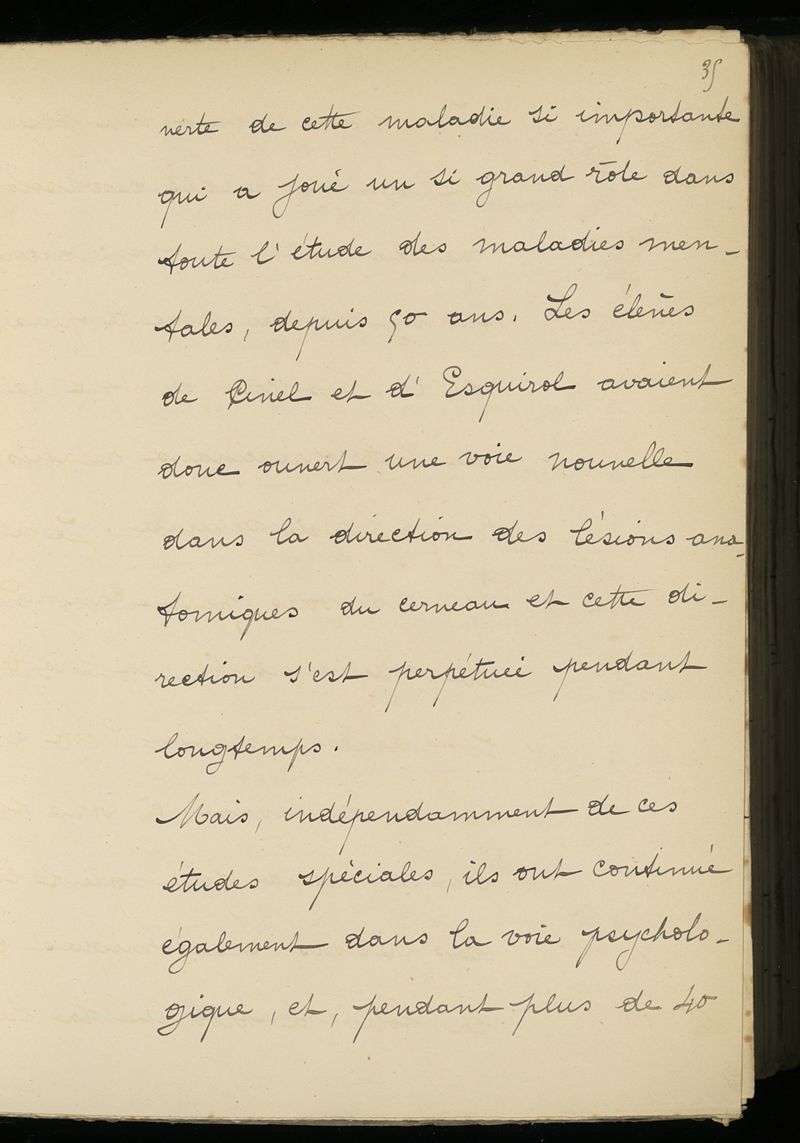 35
verte de cette maladie si importante
qui a joué un si grand rôle dans
toute l'étude des maladies men-
tales, depuis 50 ans. Les élèves
de Pinel et d'Esquirol avaient
donc ouvert une voie nouvelle
dans la direction des lésions ana-
tomiques du cerveau et cette di-
rection s'est perpétuée pendant
longtemps.
Mais, indépendamment de ces
études spéciales, ils ont continué
également dans la voie psycholo-
gique, et, pendant plus de 40